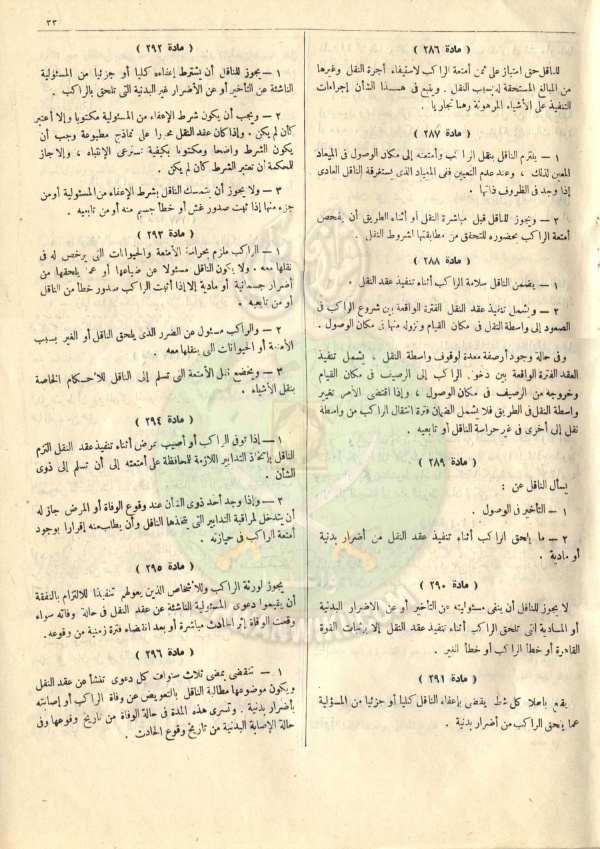 ٣٣
( مادة ٢٨٦ )
للناقل حق امتياز على ثمن أمتعة الراكب لاستيفاء أجرة النقل وغيرها
من المبالغ المستحقة له بسبب النقل . ويتبع فى هذا الشأن إجراءات
التنفيذ على الأشياء المرهونة رهنا تجاريا .
( مادة ٢٨٧ )
١ — يلتزم الناقل بنقل الراكب وأمتعته إلى مكان الوصول فى الميعاد
المعين لذلك ، وعند عدم التعيين ففى الميعاد الذى يستغرقه الناقل العادى
إذا وجد فى الظروف ذاتها .
٢ — ويجوز للناقل قبل مباشرة النقل أو أثناء الطريق أن يفحص
أمتعة الراكب بحضوره للتحقق من مطابقتها لشروط النقل .
( مادة ٢٨٨ )
١ — يضمن الناقل سلامة الراكب أثناء تنفيذ عقد النقل .
٢ — ويشمل تنفيذ عقد النقل الفترة الواقعة بين شروع الراكب فى
الصعود إلى واسطة النقل فى مكان القيام ونزوله منها فى مكان الوصول .
وفى حالة وجود أرصفة معدة لوقوف واسطة النقل ، يشمل تنفيذ
العقد الفترة الواقعة بين دخول الراكب إلى الرصيف فى مكان القيام
وخروجه من الرصيف فى مكان الوصول ، وإذا اقتضى الأمر تغيير
واسطة النقل فى الطريق فلا يشمل الضمان فترة انتقال الراكب من واسطة
نقل إلى أخرى فى غير حراسة الناقل أو تابعيه .
( مادة ٢٨٩ )
يسأل الناقل عن :
١ — التأخير فى الوصول .
٢ — ما يلحق الراكب أثناء تنفيذ عقد النقل من أضرار بدنية
أو مادية .
( مادة ٢٩٠ )
لا يجوز للناقل أن ينفى مسئوليته عن التأخير أو عن الاضرار البدنية
أو المادية التى تلحق الراكب أثناء تنفيذ عقد النقل إلا بإثبات القوة
القاهرة أو خطأ الراكب أو خطأ الغير .
( مادة ٢٩١ )
يقع باطلا كل شرط يقضى بإعفاء الناقل كليا أو جزئيا من المسئولية
عما يلحق الراكب من أضرار بدنية .
( مادة ٢٩٢ )
١ — يجوز للناقل أن يشترط إعفاءه كليا أو جزئيا من المسئولية
الناشئة عن التأخير أو عن الأضرار غير البدنية التى تلحق بالراكب .
٢ — ويجب أن يكون شرط الإعفاء من المسئولية مكتوبا وإلا أعتبر
كأن لم يكن . وإذا كان عقد النقل محررا على نماذج مطبوعة وجب أن
يكون الشرط واضحا ومكتوبا بكيفية تسترعى الإنتباه ، وإلا جاز
للمحكمة أن تعتبر الشرط كأن لم يكن .
٣ — ولا يجوز أن يتمسك الناقل بشرط الإعفاء من المسئولية أو من
جزء منها إذا ثبت صدور غش أو خطأ جسيم منه أو من تابعيه .
( مادة ٢٩٣ )
١ — الراكب ملزم بحراسة الأمتعة والحيوانات التى يرخص له فى
نقلها معه . ولا يكون الناقل مسئولا عن ضياعها أو عما يلحقها من
أضرار جسمانية أو مادية إلا إذا أثبت الراكب صدور خطأ من الناقل
أو من تابعيه .
٢ — والراكب مسئول عن الضرر الذى يلحق الناقل أو الغير بسبب
الأمتعة أو الحيوانات التى ينقلها معه .
٣ — ويخضع نقل الأمتعة التى تسلم إلى الناقل للأحكام الخاصة
بنقل الأشياء .
( مادة ٢٩٤ )
١ — إذا توفى الراكب أو أصيب بمرض أثناء تنفيذ عقد النقل التزم
الناقل بإتخاذ التدابير اللازمة للمحافظة على أمتعته إلى أن تسلم إلى ذوى
الشأن .
٢ — وإذا وجد أحد ذوى الشأن عند وقوع الوفاة أو المرض جاز له
أن يتدخل لمراقبة التدابير التى يتخذها الناقل وأن يطلب منه إقرارا بوجود
أمتعة الراكب فى حيازته .
( مادة ٢٩٥ )
يجوز لورثة الراكب وللأشخاص الذين يعولهم تنفيذا للالتزام بالنفقة
أن يقيموا دعوى المسئولية الناشئة عن عقد النقل فى حالة وفاته سواء
وقعت الوفاة إثر الحادث مباشرة أو بعد انقضاء فترة زمنية من وقوعه .
( مادة ٢٩٦ )
١ — تنقضى بمضى ثلاث سنوات كل دعوى تنشأ عن عقد النقل
ويكون موضوعها مطالبة الناقل بالتعويض عن وفاة الراكب أو إصابته
بأضرار بدنية . وتسرى هذه المدة فى حالة الوفاة من تاريخ وقوعها وفى
حالة الإصابة البدنية من تاريخ وقوع الحادث .